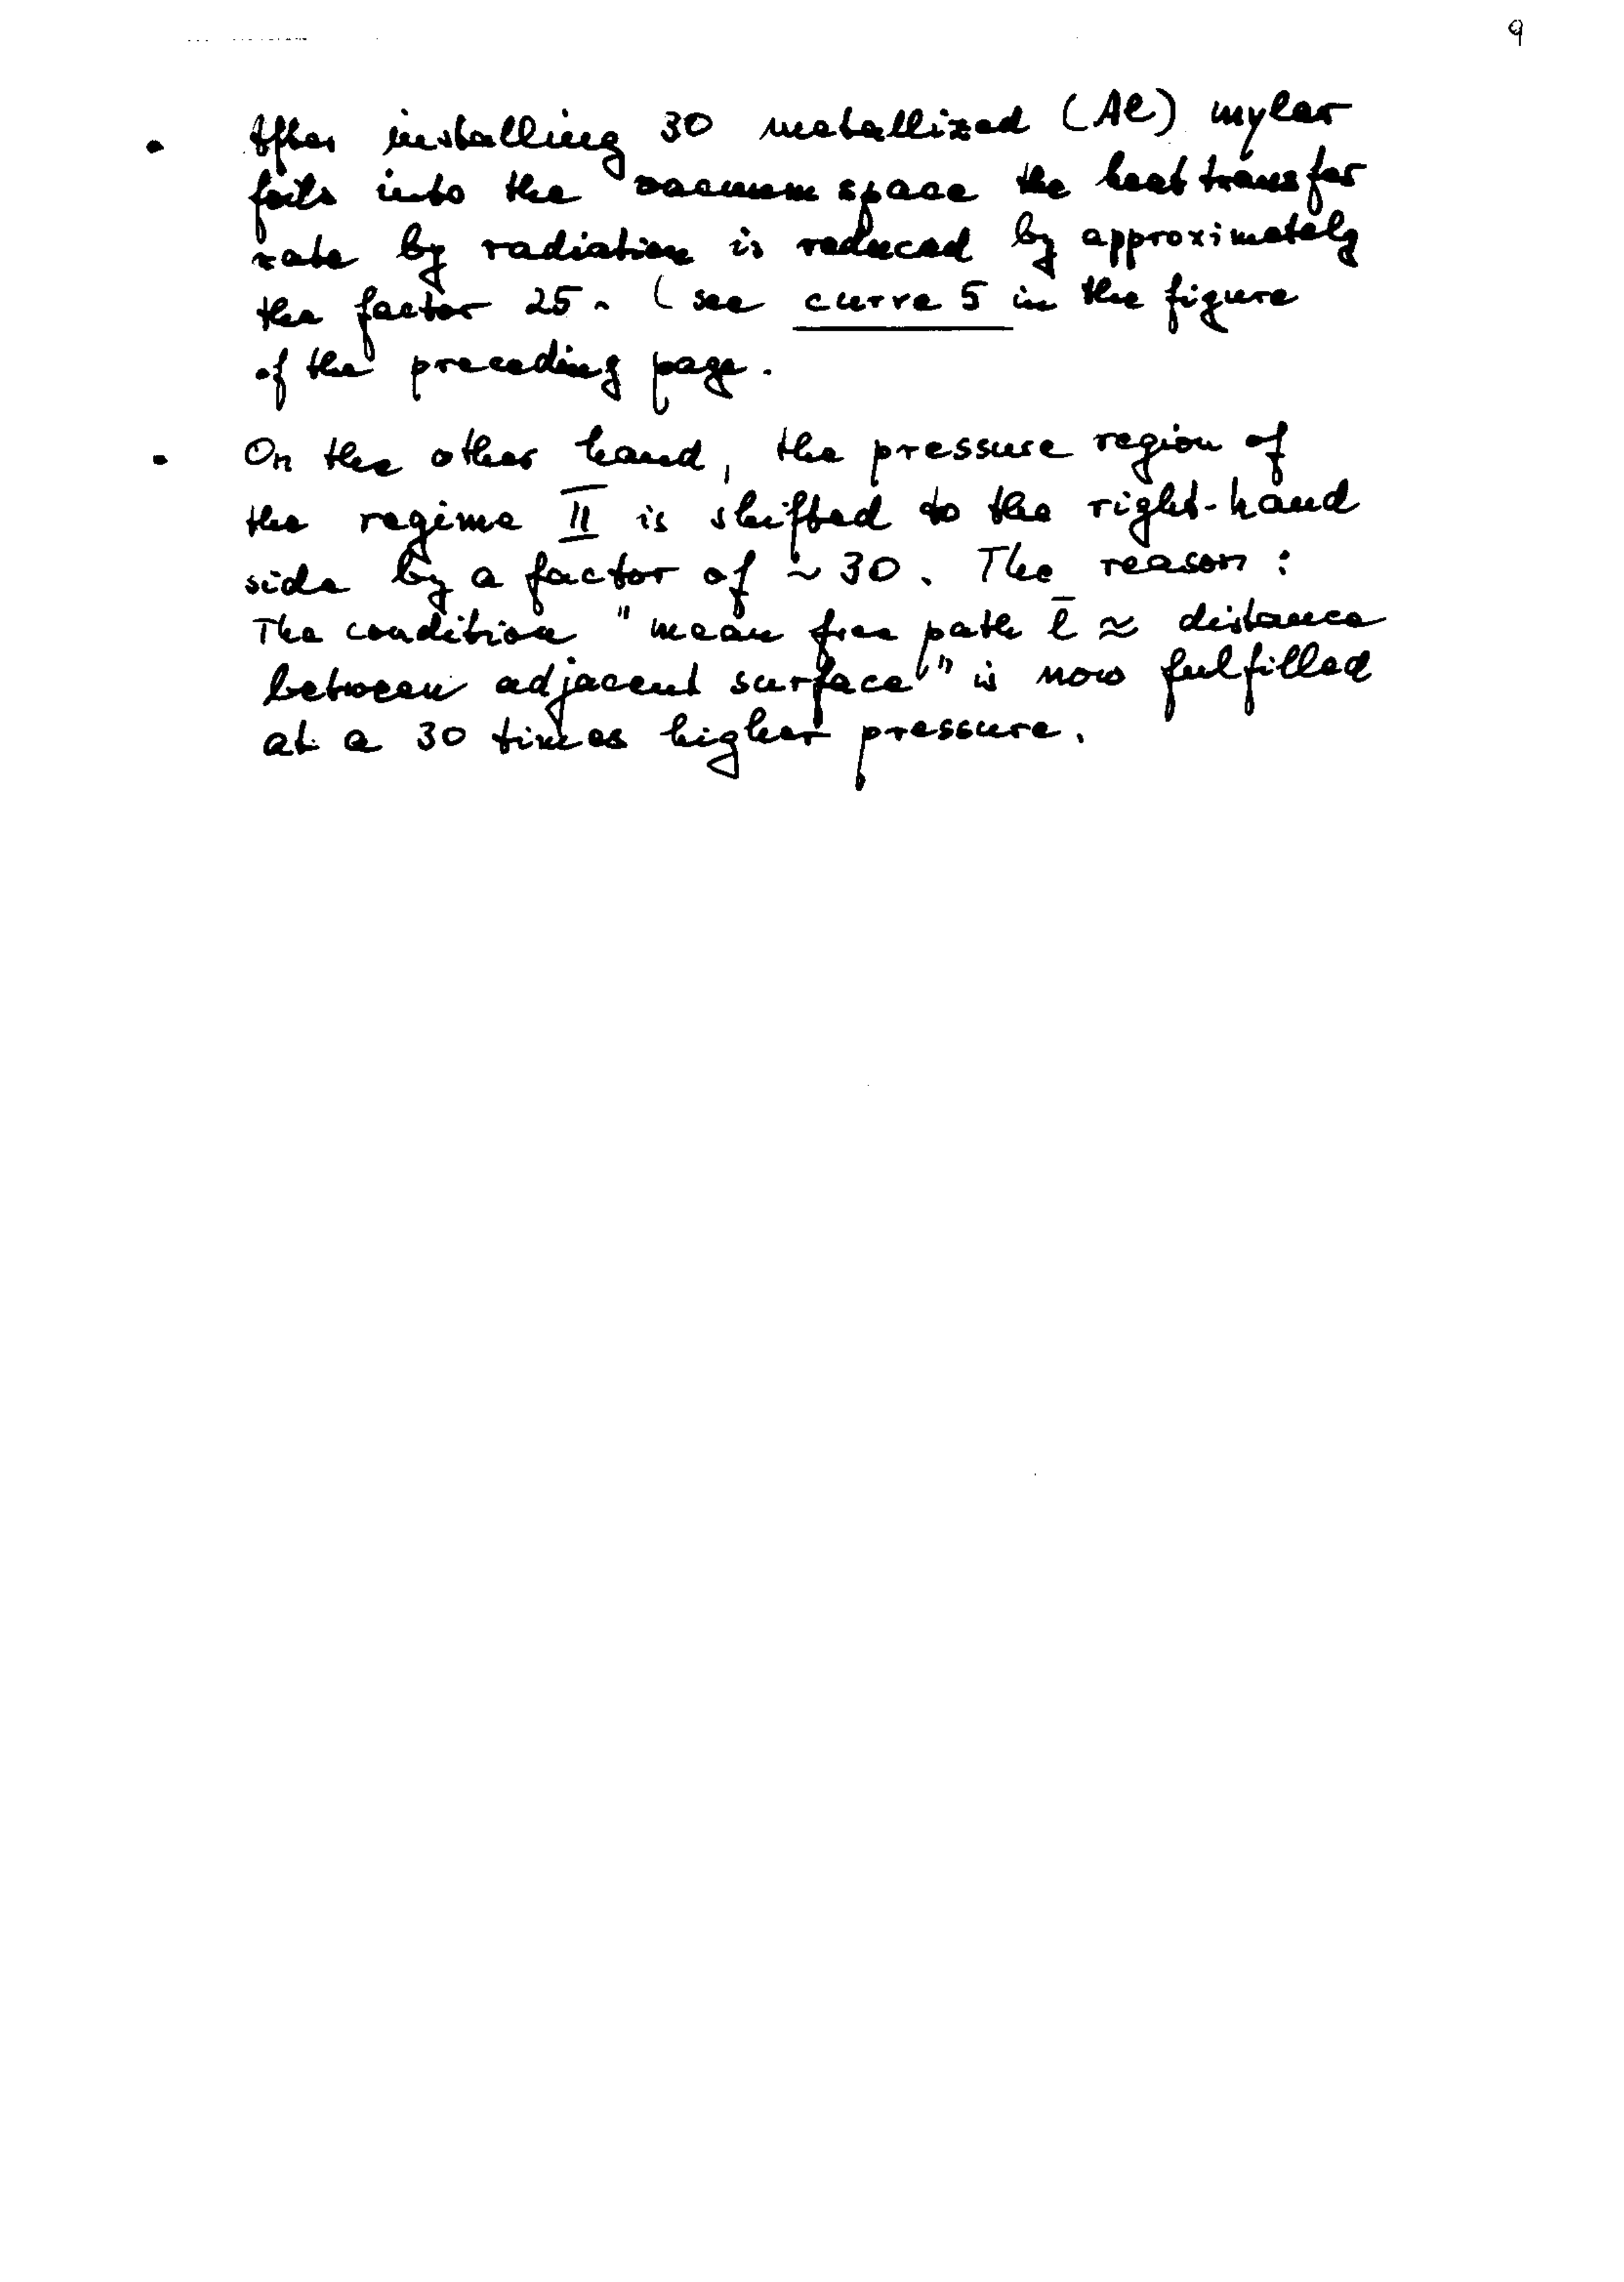 9
• After installing 30 metallized (Al) mylar
foils into the vacuum space the heat transfer
rate by radiation is reduced by approximately
the factor 25. (see curve 5 in the figure
of the preceding page.
• On the other hand, the pressure region of
the regime II is shifted to the right-hand
side by a factor of ~ 30. The reason:
The condition "mean free path l̄ ≈ distance
between adjacent surface" is now fulfilled
at a 30 times higher pressure.